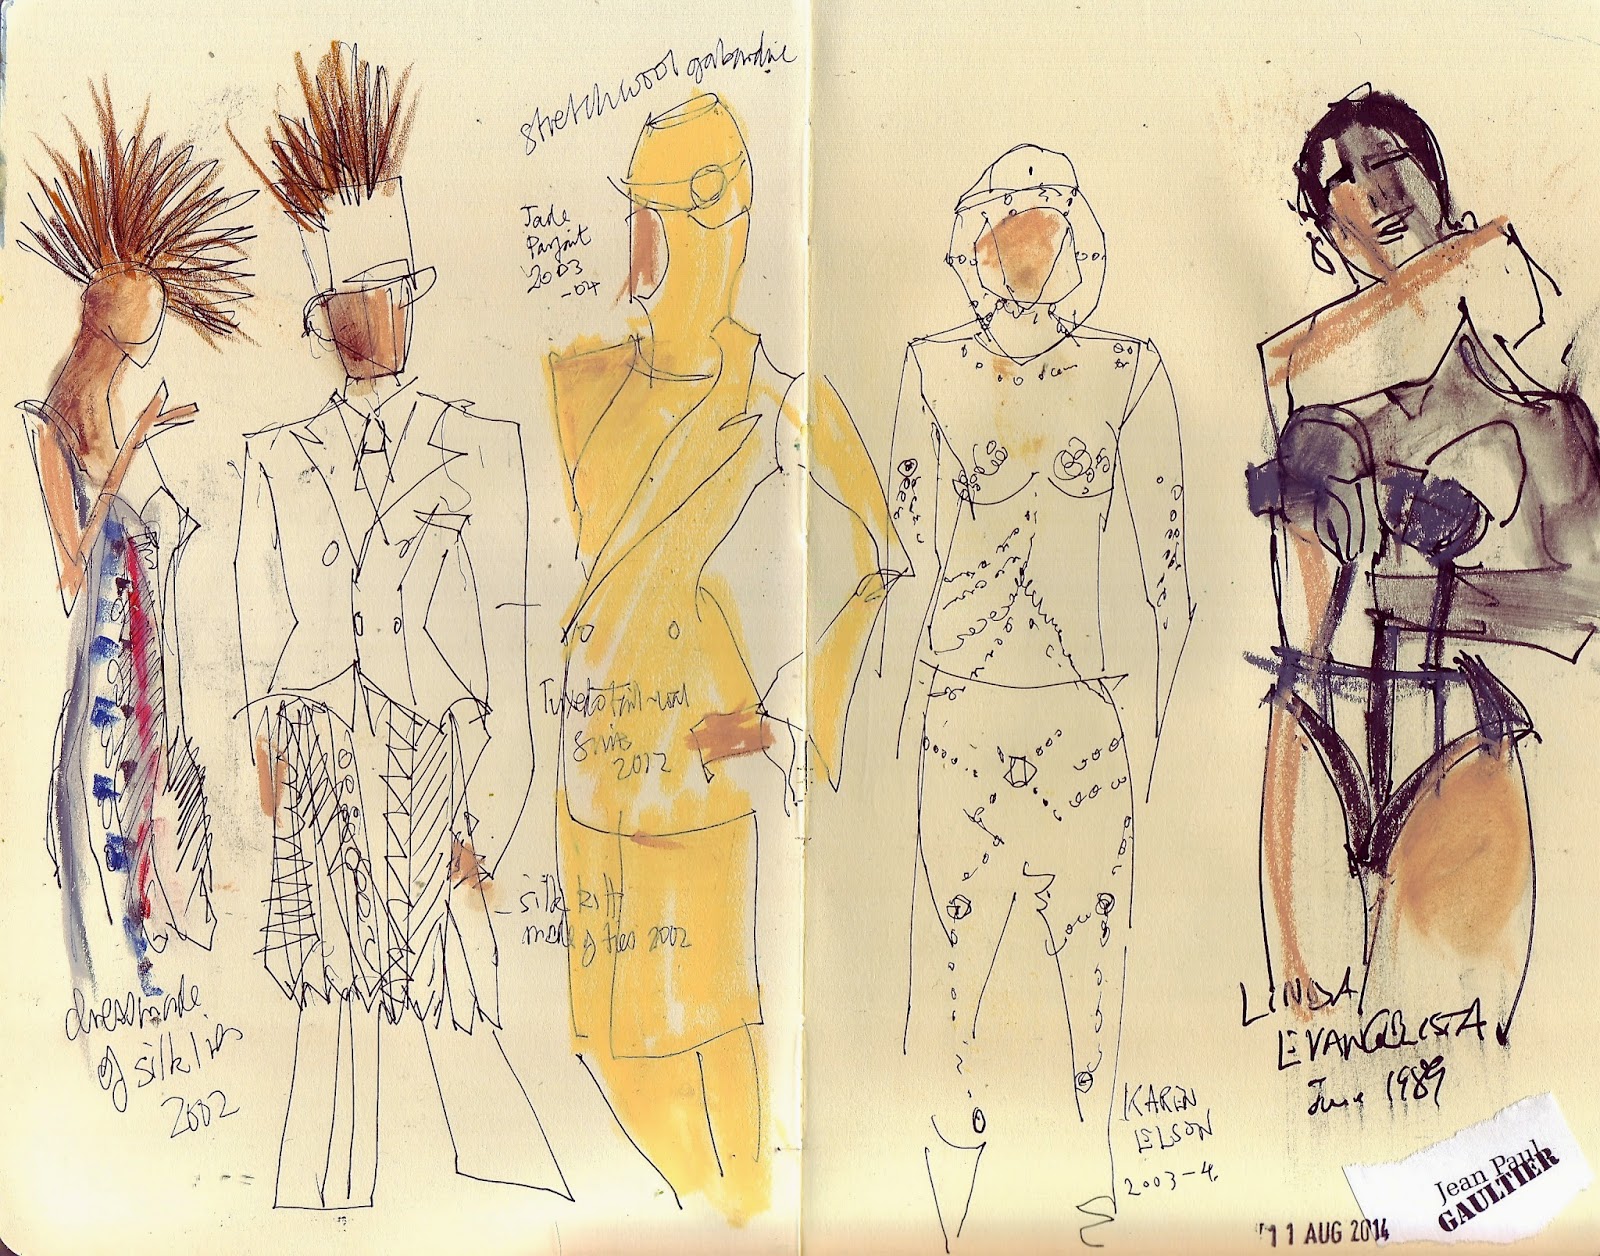 stretch wool gabardine
Jade
Parfait
2003
-04
Tuxedo tail-coat
2012
silk kilt
made of ties 2002
dress made
of silk ties
2002
KAREN
ELSON
2003-4.
LINDA
EVANGELISTA
June 1989
Jean Paul
GAULTIER
11 AUG 2014